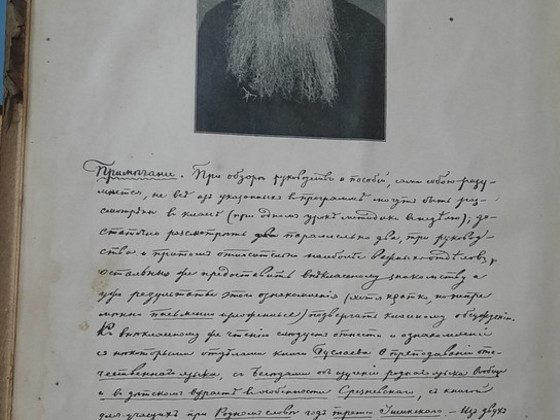 Примѣчаніе. При обзорѣ руководствъ и пособій, само собою разу-
мѣется, не всѣ изъ указанныхъ въ программѣ могутъ быть раз-
смотрѣны въ классѣ (при одномъ урокѣ методики въ недѣлю); до-
статочно разсмотрѣть параллельно два, три руковод-
ства и притомъ относительно наиболѣе важныхъ отдѣловъ,
остальное же предоставить внѣклассному знакомству а
уже результаты этого ознакомленія (хотя кратко, но непре
мѣнно письменно изложенные) подвергать классному обсужденію.
Къ внѣклассному же чтенію слѣдуетъ отнести и ознакомленіе
съ нѣкоторыми отдѣлами книги Буслаева О преподаваніи оте-
чественнаго языка, съ Бесѣдами объ изученіи роднаго языка вообще
и въ дѣтскомъ возрастѣ въ особенности Срезневскаго, съ книгой
для учащихъ при Родномъ словѣ годъ третій Ушинскаго. — Изъ двухъ